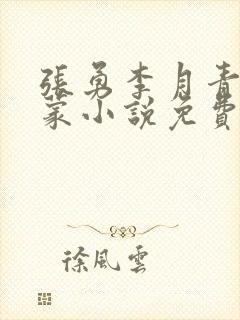 張勇李月青
家小說免費
徐風雲